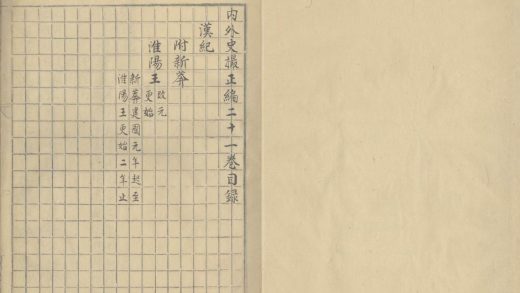 內外史撮正編二十一卷目錄
漢紀
附新莽
淮陽王
改元
更始
新莽建國元年起至
淮陽王更始二年止